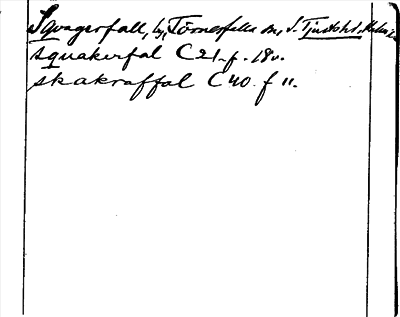 Sqvagerfall, by, Törnesfalla sn, S. Tjusts hd, Kalm. l.
squakerfal C 21. f. 18 v.
skakraffal C 40. f 11.